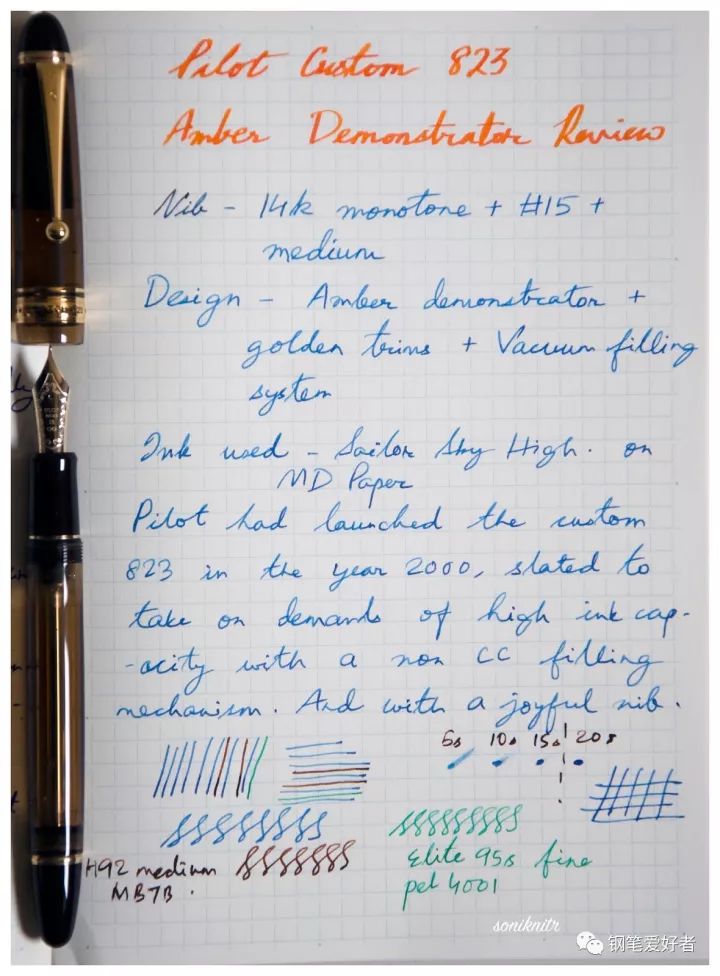 Pilot Custom 823
Amber Demonstrator Review
Nib - 14k monotone + #15 +
medium
Design - Amber demonstrator +
golden trims + Vacuum filling
system
Ink used - Sailor Sky High. on
MD Paper
Pilot had launched the custom
823 in the year 2000, slated to
take on demands of high ink cap-
-acity with a non CC filling
mechanism. And with a joyful nib.
5s 10s 15s 20s
H92 medium
MB7B.
Elite 95s fine
pel 4001
soniknitr
钢笔爱好者